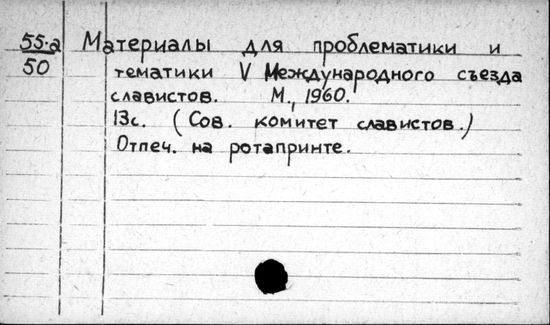 55-а Материалы для проблематики и
50 тематики V Международного съезда
славистов. М., 1960.
13с. (Сов. комитет славистов.)
Отпеч. на ротапринте.